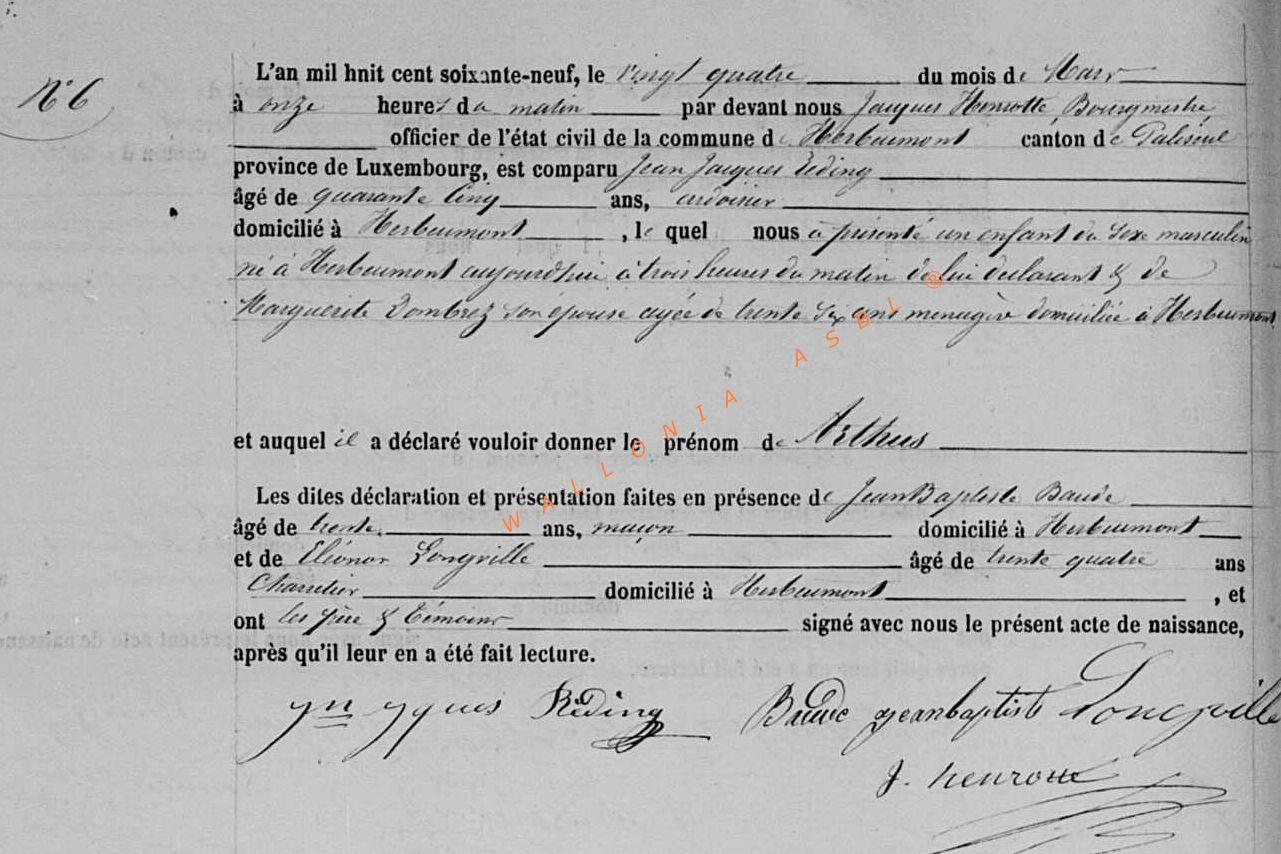 N° 6
L'an mil hnit cent soixante-neuf, le vingt quatre du mois de Mars
à onze heures du matin par devant nous Jacques Henrotte, Bourgmestre,
officier de l'état civil de la commune de Herbeumont canton de Paliseul
province de Luxembourg, est comparu Jean Jacques Réding
âgé de quarante cinq ans, ardoisier
domicilié à Herbeumont , le quel nous a présenté un enfant du sexe masculin
né à Herbeumont aujourd'hui à trois heures du matin de lui déclarant & de
Marguerite Dombrez son épouse agée de trente six ans menagère domiciliée à Herbeumont
et auquel il a déclaré vouloir donner le prénom de Arthus
Les dites déclaration et présentation faites en présence de Jean Baptiste Baude
âgé de trente ans, maçon domicilié à Herbeumont
et de Eléonor Longville âgé de trente quatre ans
Charretier domicilié à Herbeumont , et
ont les père & temoins signé avec nous le présent acte de naissance,
après qu'il leur en a été fait lecture.
Réding jeanbaptiste Longville
J. henrotte
WALLONIA ASBL ®